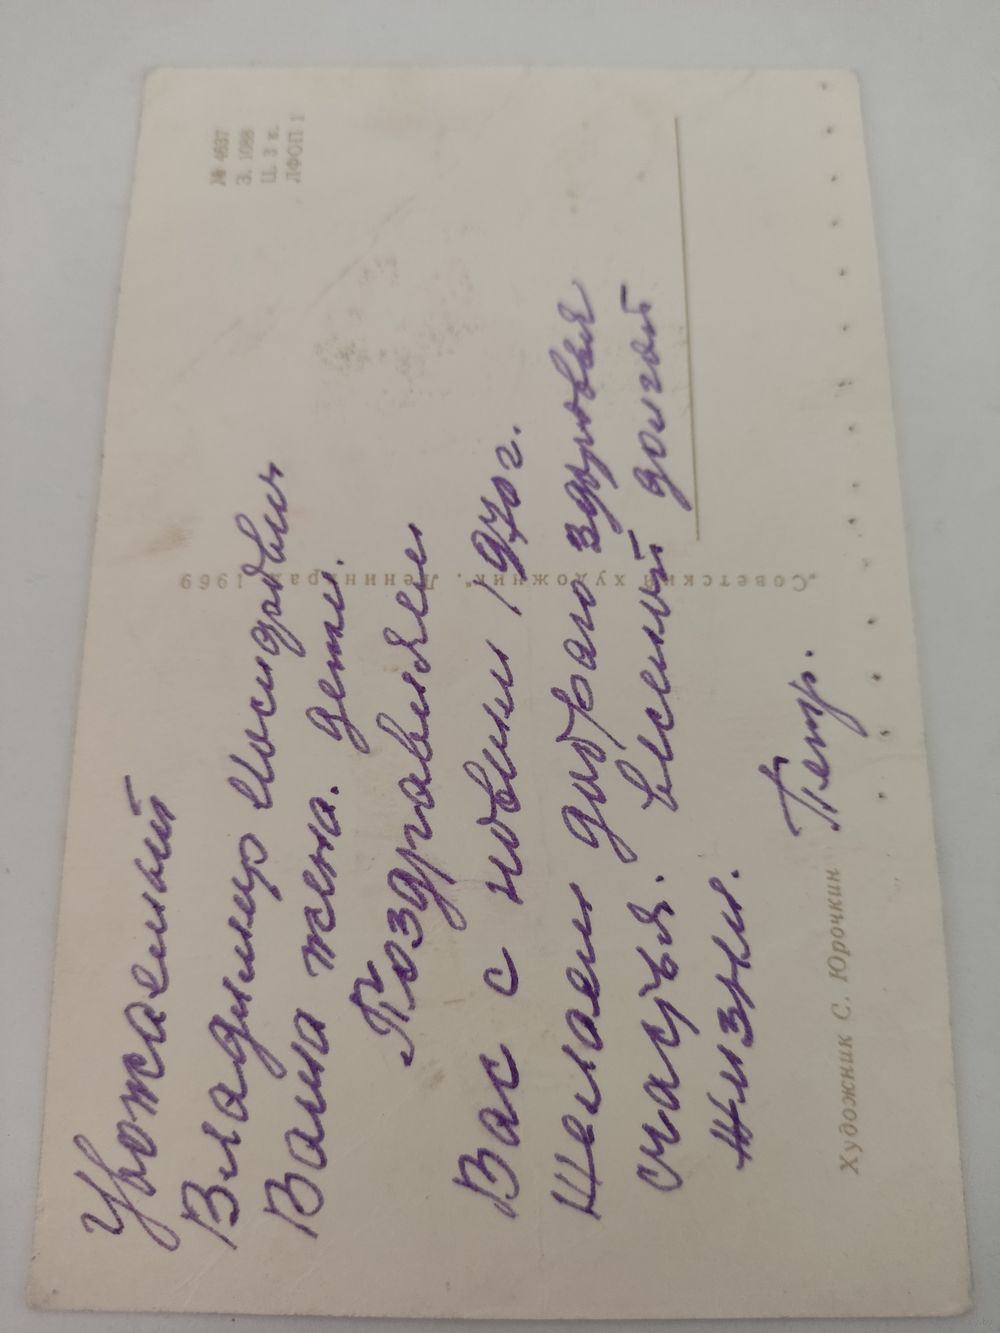 Уважаемый
Владимир Иосифович
Ваша жена. дети.
Поздравляем
Вас с новым 1970г.
Желаем доброго здоровья
счастья. веселой долгой
жизни.
Петр.
№ 4637
З. 1088
Ц. 3 к.
ЛФОП 1
"Советский художник". Ленинград. 1969
Художник С. Юрочкин